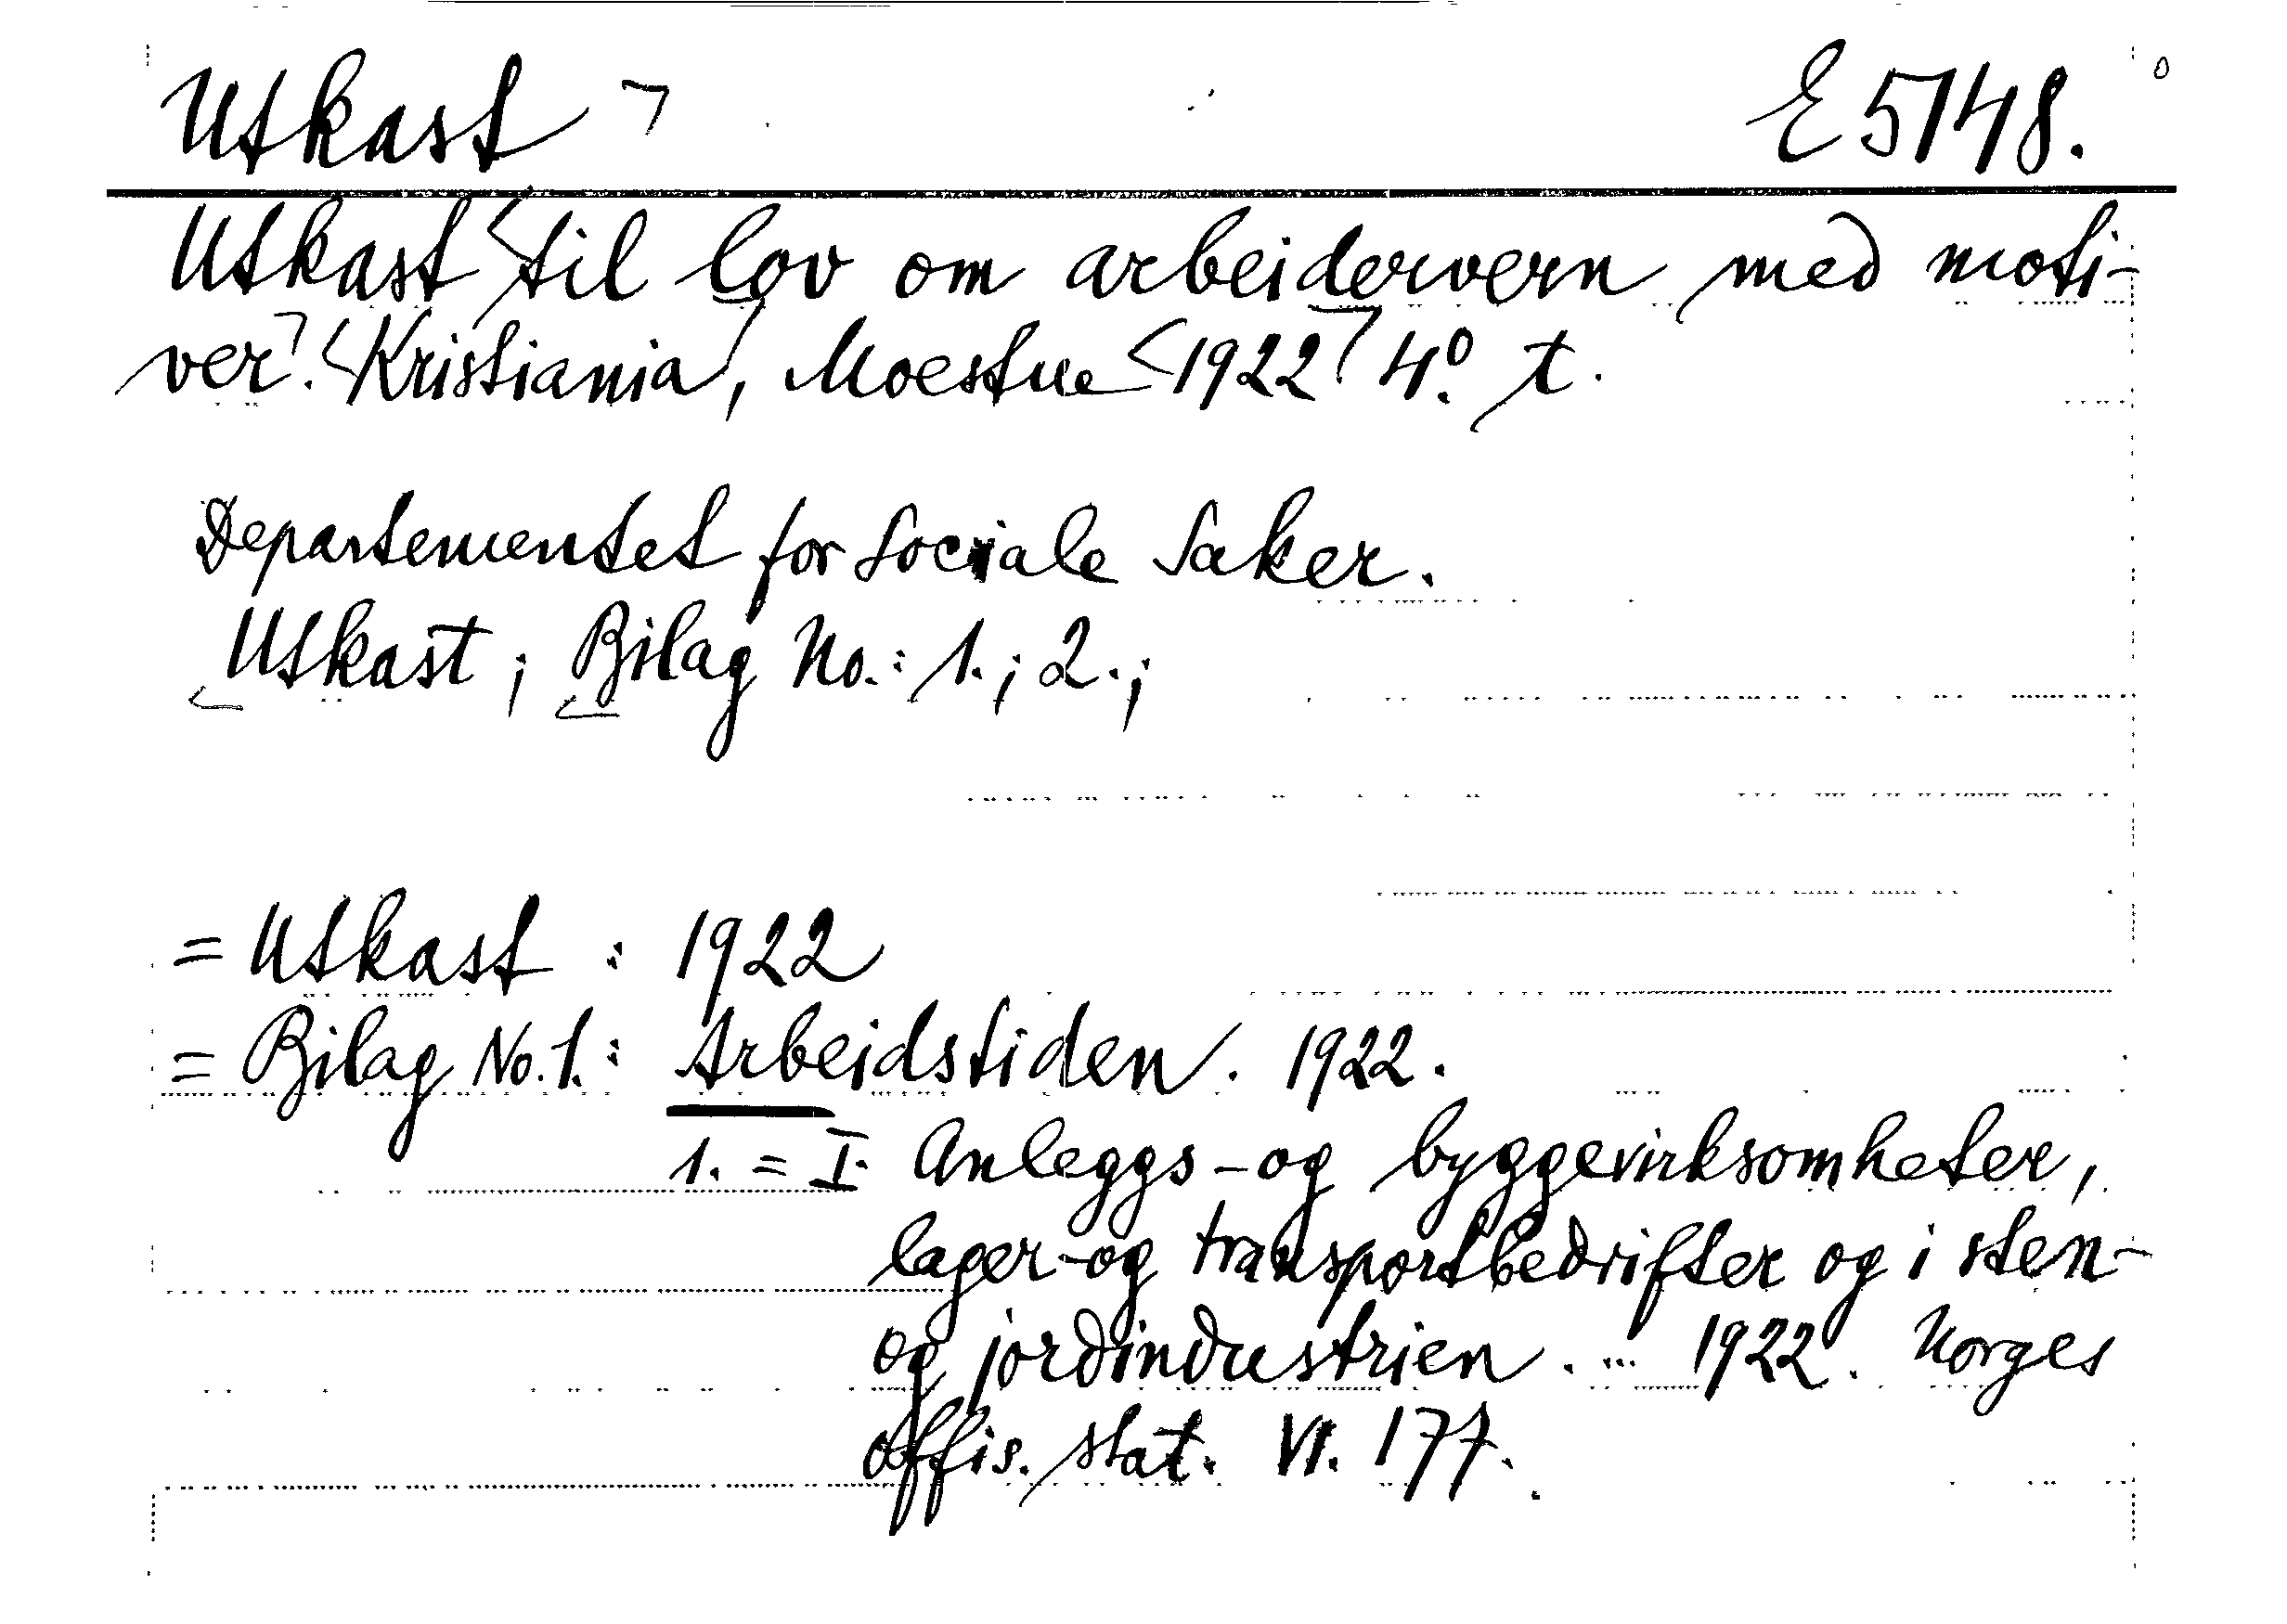 Utkast ¬ E 5148.
Utkast < til lov om arbeidervern med moti-
ver ¬. < Kristiania ¬, Moestue < 1922 ¬ 4º. t.
Departementet for Sociale Saker.
Utkast ; Bilag No.: 1. ; 2. ;
= Utkast : 1922
= Bilag No. 1. : Arbeidstiden. 1922.
1. = I. Anleggs- og byggevirksomheter,
lager- og transportbedrifter og i sten-
og jordindustrien. ... 1922. Norges
offis. stat. VI. 177.